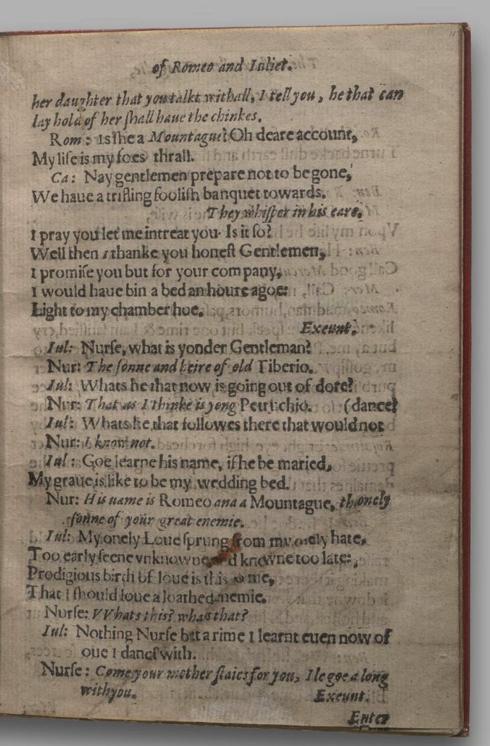 of Romeo and Iuliet.
her daughter that you talkt withall, I tell you, he that can
lay hold of her ſhall haue the chinkes.
Rom: Is ſhe a Mountague? Oh deare account,
My life is my foes thrall.
Ca: Nay gentlemen prepare not to be gone,
We haue a trifling fooliſh banquet towards.
They whiſper in his eare.
I pray you let me intreat you. Is it ſo?
Well then I thanke you honeſt Gentlemen,
I promiſe you but for your company,
I would haue bin a bed an houre agoe:
Light to my chamber hoe.
Exeunt.
Iul: Nurſe, what is yonder Gentleman?
Nur: The ſonne and heire of old Tiberio.
Iul: Whats he that now is going out of dore?
Nur: That as I thinke is yong Petruchio. (dance?
Iul: Whats he that followes there that would not
Nur: I know not.
Iul: Goe learne his name, if he be maried,
My graue is like to be my wedding bed.
Nur: His name is Romeo and a Mountague, the onely
ſonne of your great enemie.
Iul: My onely Loue ſprung from my onely hate,
Too early ſeene vnknowne and knowne too late:
Prodigious birth of loue is this to me,
That I ſhould loue a loathed enemie.
Nurſe: VVhats this? whats that?
Iul: Nothing Nurſe but a rime I learnt euen now of
oue I dancſt with.
Nurſe: Come your mother ſtaies for you, Ile goe a long
with you. Exeunt.
Enter